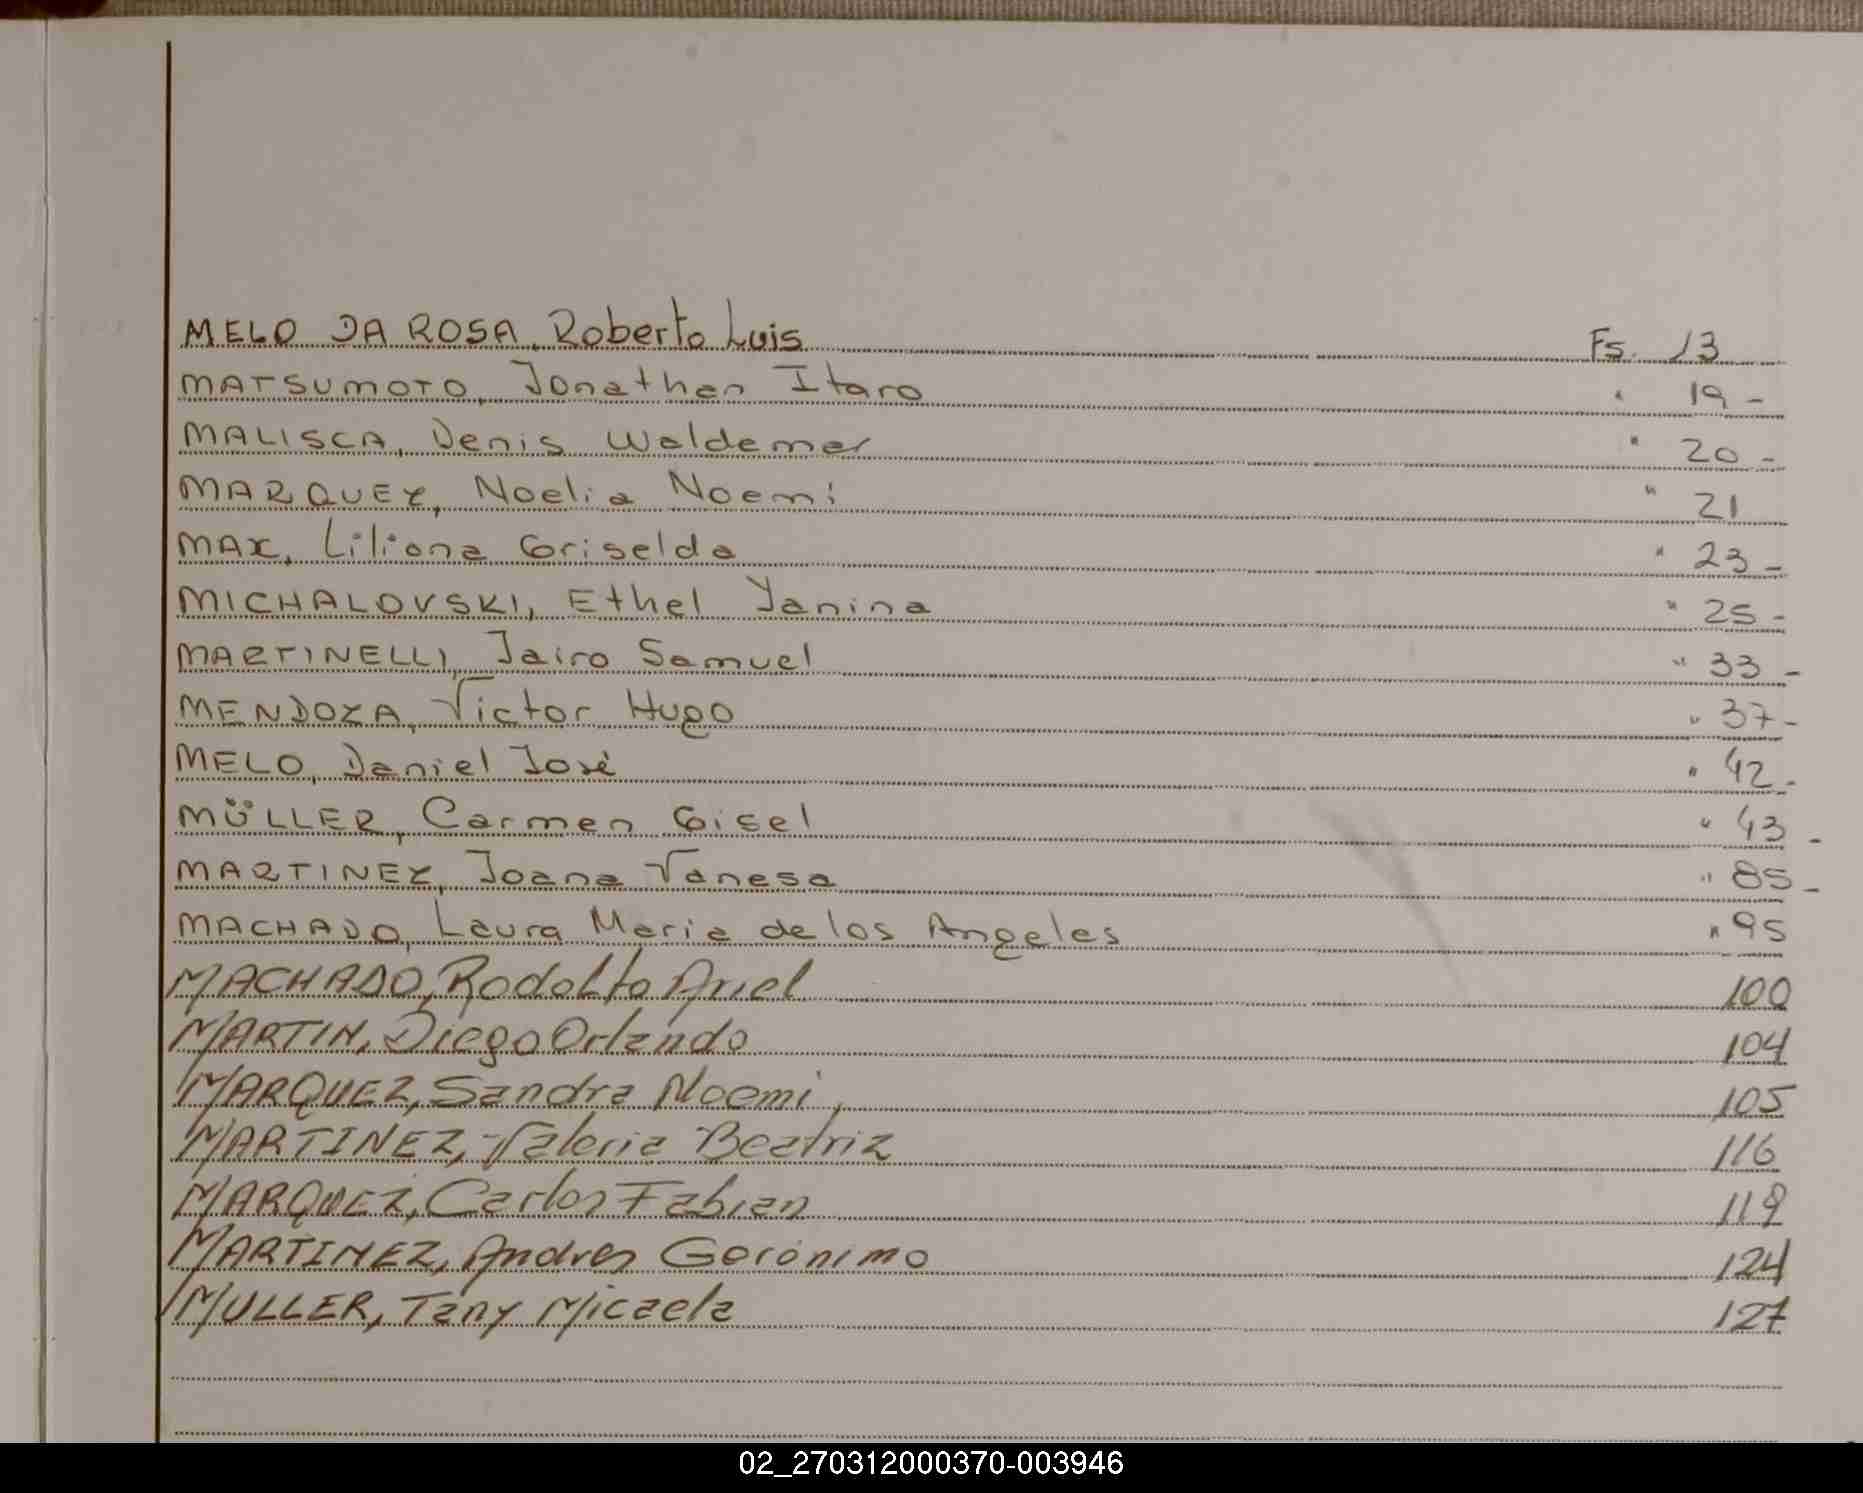 MELO DA ROSA, Roberto Luis Fs. 13
MATSUMOTO, Jonathan Itaro " 19 -
MALISCA, Denis Waldemar " 20 -
MARQUEZ, Noelia Noemi " 21
MAX, Liliana Griselda " 23 -
MICHALOVSKI, Ethel Yanina " 25 -
MARTINELLI, Jairo Samuel " 33 -
MENDOZA, Victor Hugo " 37 -
MELO, Daniel José " 42 -
MÜLLER, Carmen Gisel " 43 -
MARTINEZ, Joana Vanesa " 85 -
MACHADO, Laura Maria de los Angeles " 95
MACHADO, Rodolfo Ariel 100
MARTIN, Diego Orlando 104
MARQUEZ, Sandra Noemi, 105
MARTINEZ, Valeria Beatriz 116
MARQUEZ, Carlos Fabian 119
MARTINEZ, Andres Gerónimo 124
MULLER, Tany Micaela 127
02_270312000370-003946